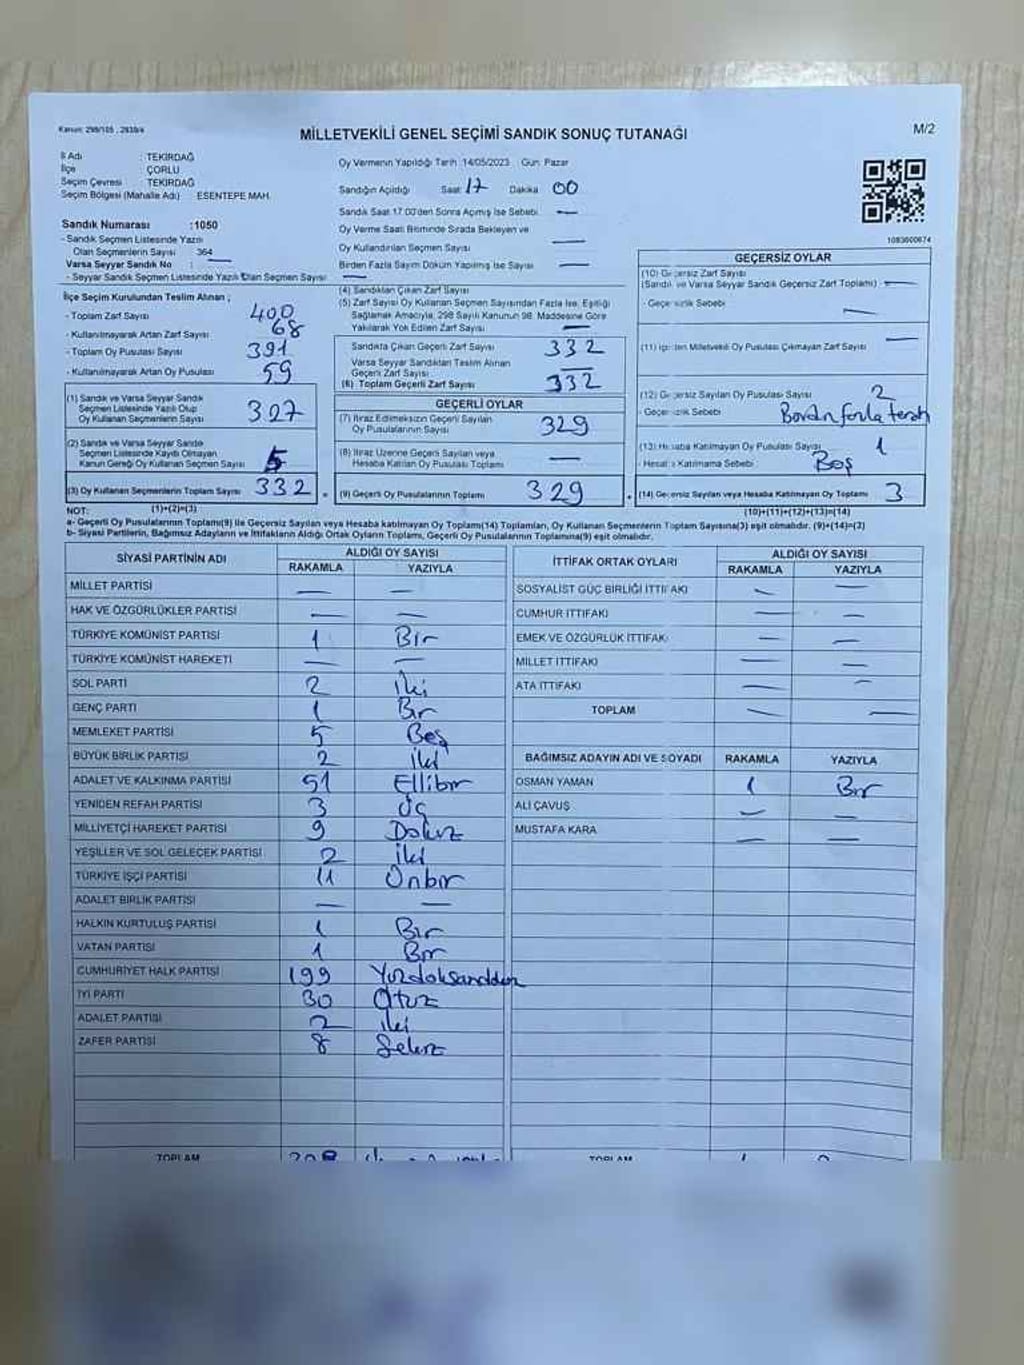 Kanun: 298/105 , 2839/4
MİLLETVEKİLİ GENEL SEÇİMİ SANDIK SONUÇ TUTANAĞI
M/2
İl Adı : TEKİRDAĞ
İlçe : ÇORLU
Seçim Çevresi : TEKİRDAĞ
Seçim Bölgesi (Mahalle Adı) ESENTEPE MAH.
Oy Vermenin Yapıldığı Tarih :14/05/2023 Gün: Pazar
Sandığın Açıldığı Saat: 17 Dakika 00
Sandık Saat 17:00'den Sonra Açılmış İse Sebebi —
Oy Verme Saati Bitiminde Sırada Bekleyen ve
Oy Kullandırılan Seçmen Sayısı —
Birden Fazla Sayım Döküm Yapılmış İse Sayısı —
1083600674
Sandık Numarası :1050
- Sandık Seçmen Listesinde Yazılı
Olan Seçmenlerin Sayısı 364
Varsa Seyyar Sandık No : —
- Seyyar Sandık Seçmen Listesinde Yazılı Olan Seçmen Sayısı
İlçe Seçim Kurulundan Teslim Alınan ;
- Toplam Zarf Sayısı 400
- Kullanılmayarak Artan Zarf Sayısı 68
- Toplam Oy Pusulası Sayısı 391
- Kullanılmayarak Artan Oy Pusulası 59
(1) Sandık ve Varsa Seyyar Sandık
Seçmen Listesinde Yazılı Olup
Oy Kullanan Seçmenlerin Sayısı 327
(2) Sandık ve Varsa Seyyar Sandık
Seçmen Listesinde Kaydı Olmayan
Kanun Gereği Oy Kullanan Seçmen Sayısı 5
(3) Oy Kullanan Seçmenlerin Toplam Sayısı 332
(1)+(2)=(3)
(4) Sandıktan Çıkan Zarf Sayısı
(5) Zarf Sayısı Oy Kullanan Seçmen Sayısından Fazla İse, Eşitliği
Sağlamak Amacıyla, 298 Sayılı Kanunun 98. Maddesine Göre
Yakılarak Yok Edilen Zarf Sayısı —
Sandıkta Çıkan Geçerli Zarf Sayısı 332
Varsa Seyyar Sandıktan Teslim Alınan
Geçerli Zarf Sayısı —
(6) Toplam Geçerli Zarf Sayısı 332
GEÇERLİ OYLAR
(7) İtiraz Edilmeksizin Geçerli Sayılan
Oy Pusulalarının Sayısı 329
(8) İtiraz Üzerine Geçerli Sayılan veya
Hesaba Katılan Oy Pusulası Toplamı —
(9) Geçerli Oy Pusulalarının Toplamı 329
GEÇERSİZ OYLAR
(10) Geçersiz Zarf Sayısı
(Sandık ve Varsa Seyyar Sandık Geçersiz Zarf Toplamı) —
- Geçersizlik Sebebi —
(11) İçinden Milletvekili Oy Pusulası Çıkmayan Zarf Sayısı —
(12) Geçersiz Sayılan Oy Pusulası Sayısı 2
- Geçersizlik Sebebi
(13) Hesaba Katılmayan Oy Pusulası Sayısı 1
- Hesaba Katılmama Sebebi Boş
(14) Geçersiz Sayılan veya Hesaba Katılmayan Oy Toplamı 3
(10)+(11)+(12)+(13)=(14)
NOT:
a- Geçerli Oy Pusulalarının Toplamı(9) ile Geçersiz Sayılan veya Hesaba katılmayan Oy Toplamı(14) Toplamları, Oy Kullanan Seçmenlerin Toplam Sayısına(3) eşit olmalıdır. (9)+(14)=(3)
b- Siyasi Partilerin, Bağımsız Adayların ve İttifakların Aldığı Ortak Oyların Toplamı, Geçerli Oy Pusulalarının Toplamına(9) eşit olmalıdır.
SİYASİ PARTİNİN ADI ALDIĞI OY SAYISI
RAKAMLA YAZIYLA
MİLLET PARTİSİ — —
HAK VE ÖZGÜRLÜKLER PARTİSİ — —
TÜRKİYE KOMÜNİST PARTİSİ 1 Bir
TÜRKİYE KOMÜNİST HAREKETİ — —
SOL PARTİ 2 iki
GENÇ PARTİ 1 Bir
MEMLEKET PARTİSİ 5 Beş
BÜYÜK BİRLİK PARTİSİ 2 iki
ADALET VE KALKINMA PARTİSİ 51 Ellibir
YENİDEN REFAH PARTİSİ 3 Üç
MİLLİYETÇİ HAREKET PARTİSİ 9 Dokuz
YEŞİLLER VE SOL GELECEK PARTİSİ 2 iki
TÜRKİYE İŞÇİ PARTİSİ 11 Onbir
ADALET BİRLİK PARTİSİ — —
HALKIN KURTULUŞ PARTİSİ 1 Bir
VATAN PARTİSİ 1 Bir
CUMHURİYET HALK PARTİSİ 199 Yüzdoksandokuz
İYİ PARTİ 30 Otuz
ADALET PARTİSİ 2 iki
ZAFER PARTİSİ 8 Sekiz
TOPLAM
İTTİFAK ORTAK OYLARI ALDIĞI OY SAYISI
RAKAMLA YAZIYLA
SOSYALİST GÜÇ BİRLİĞİ İTTİFAKI — —
CUMHUR İTTİFAKI — —
EMEK VE ÖZGÜRLÜK İTTİFAKI — —
MİLLET İTTİFAKI — —
ATA İTTİFAKI — —
TOPLAM — —
BAĞIMSIZ ADAYIN ADI VE SOYADI RAKAMLA YAZIYLA
OSMAN YAMAN 1 Bir
ALİ ÇAVUŞ — —
MUSTAFA KARA — —
TOPLAM